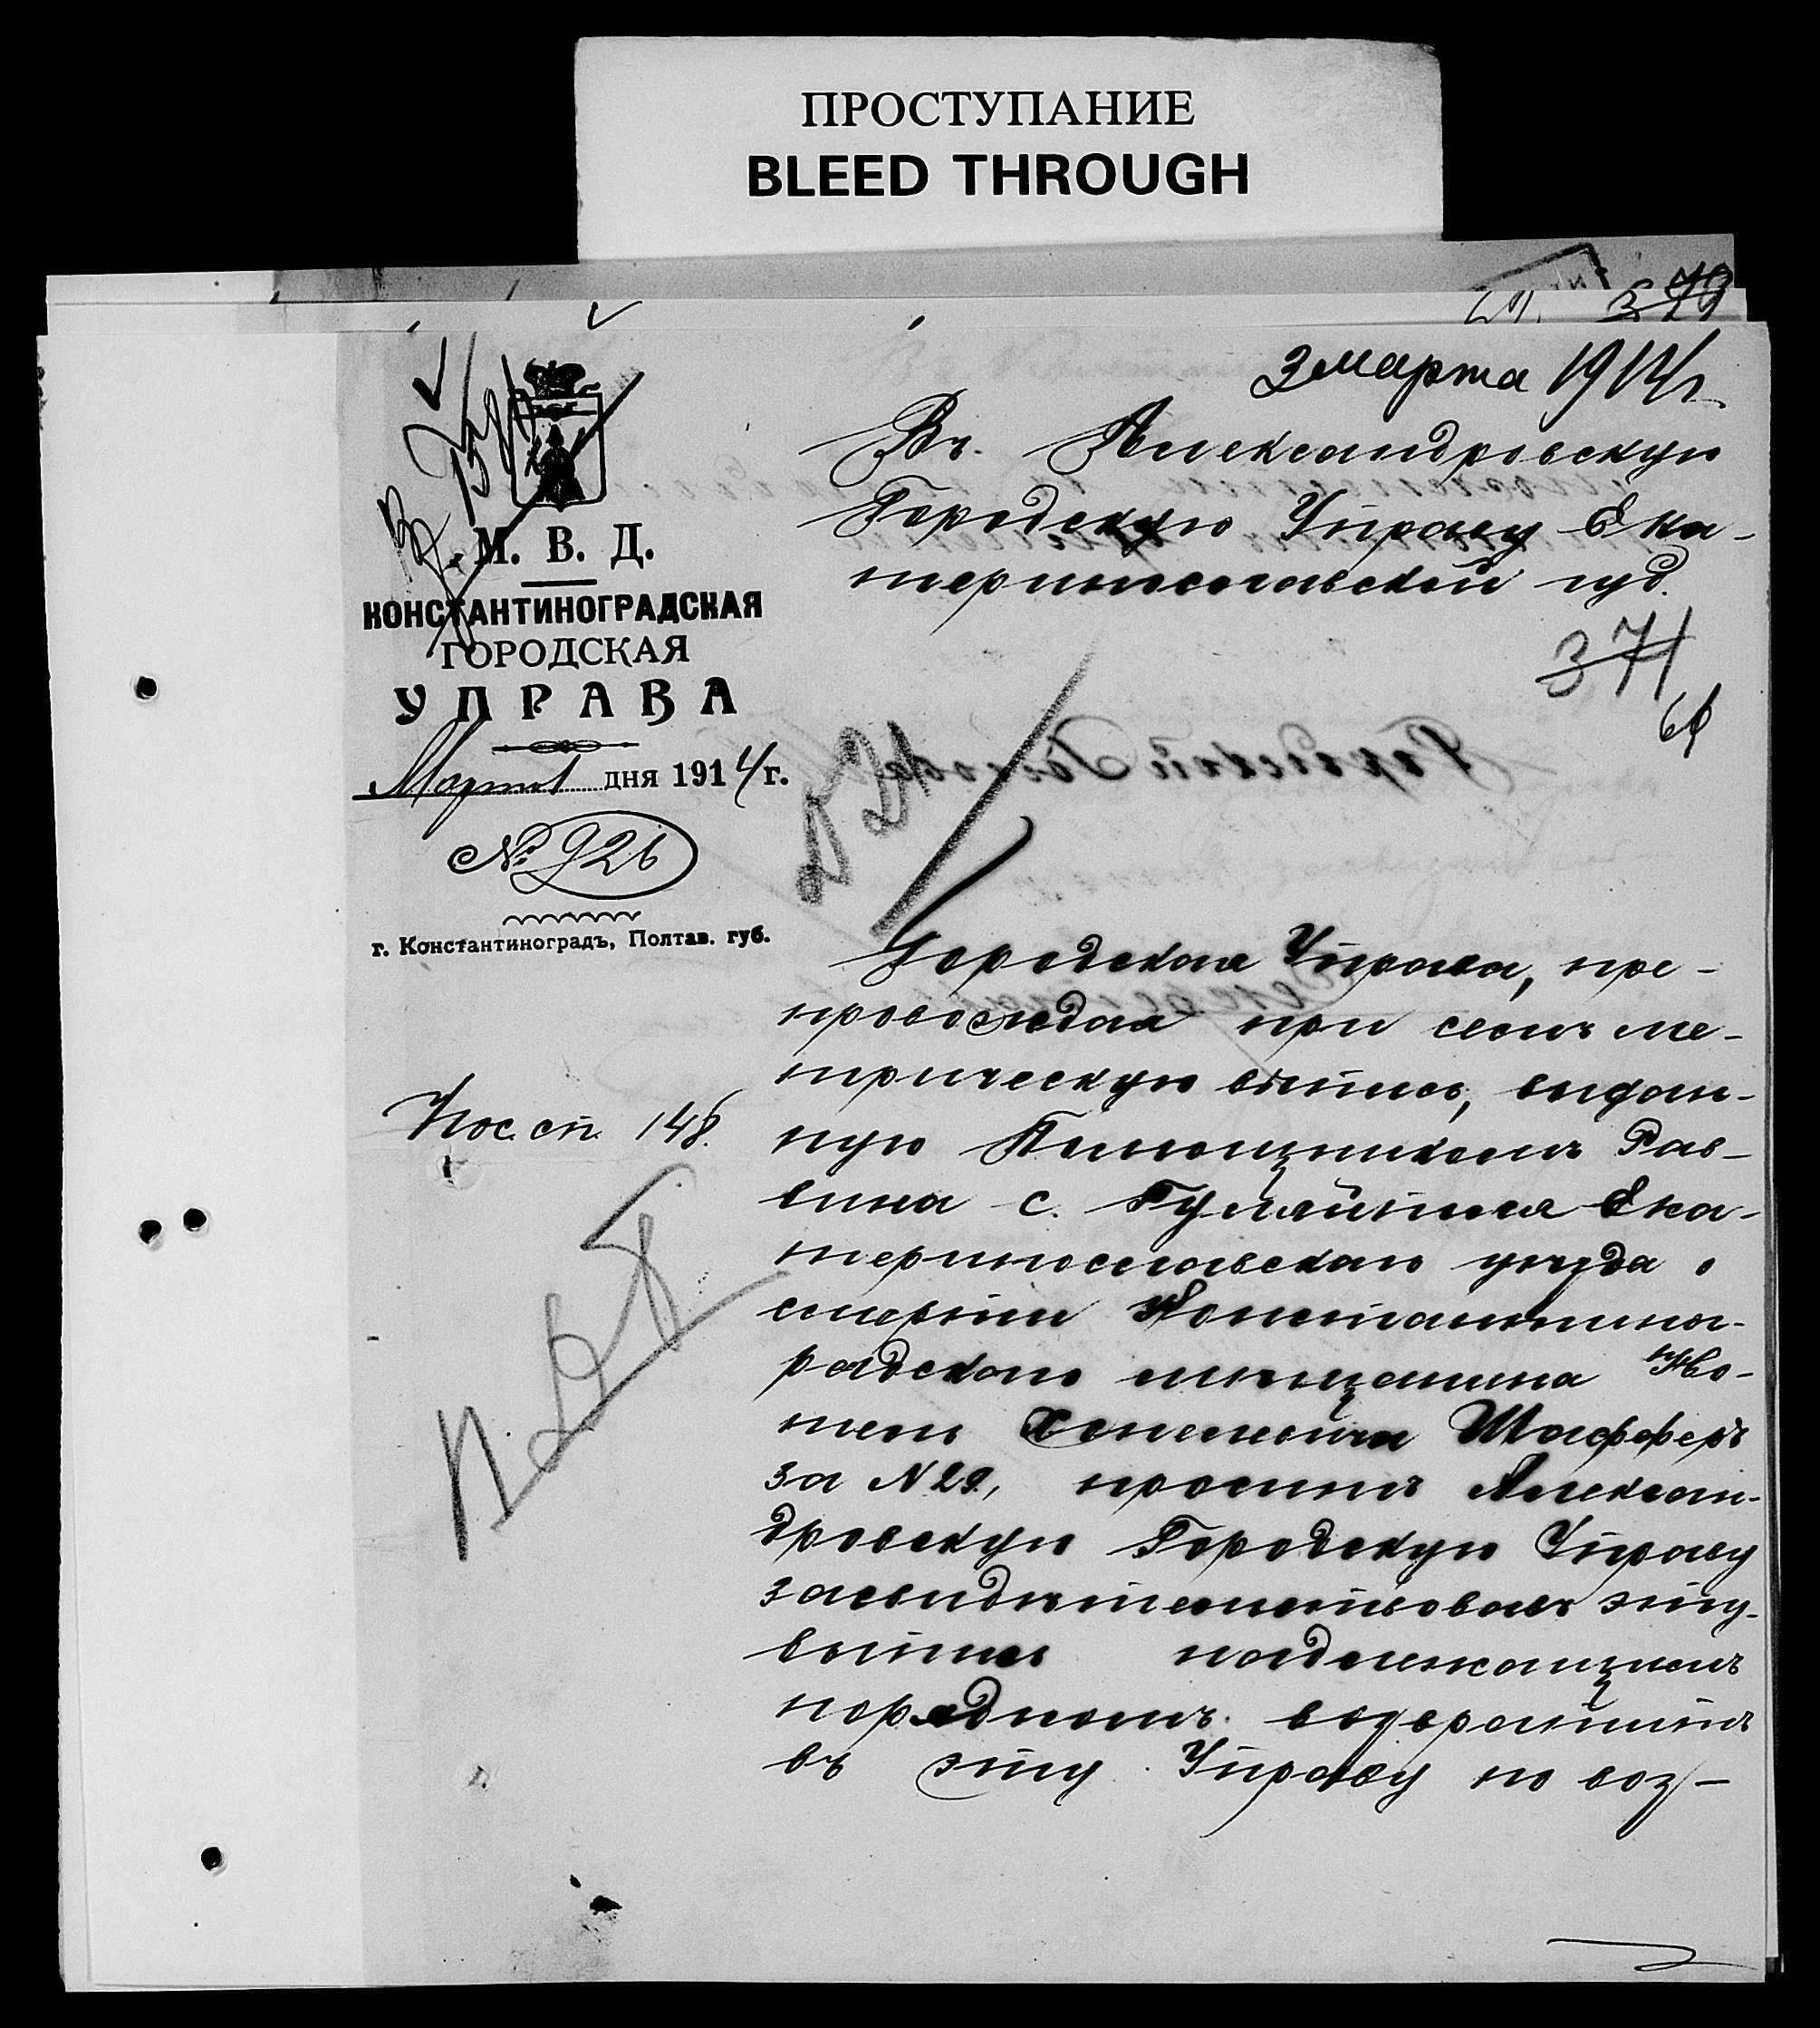 ПРОСТУПАНИЕ
BLEED THROUGH
3 марта 1914 г.
Въ Александровскую
Городскую Управу Ека-
теринославской губ.
371
М. В. Д.
КОНСТАНТИНОГРАДСКАЯ
ГОРОДСКАЯ
УПРАВА
Марта 1 дня 1914 г.
№ 926
г. Константиноградъ, Полтав. губ.
Городская Управа, пре-
провождая при семъ ме-
трическую выпись, выдан-
ную Помощникомъ Рав-
вина с. Гуляйполя Ека-
теринославскаго уѣзда о
смерти Константино-
градскаго мѣщанина
Шафферъ
за № 29, проситъ Алексан-
дровскую Городскую Управу
засвидѣтельствовавъ эту
выпись надлежащимъ
порядкомъ возвратить
въ эту Управу по воз-
Пос. сп. 148.